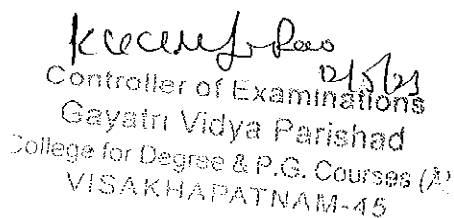 Rao
Controller of Examinations
Gayatri Vidya Parishad
College for Degree & P.G. Courses (A)
VISAKHAPATNAM-45